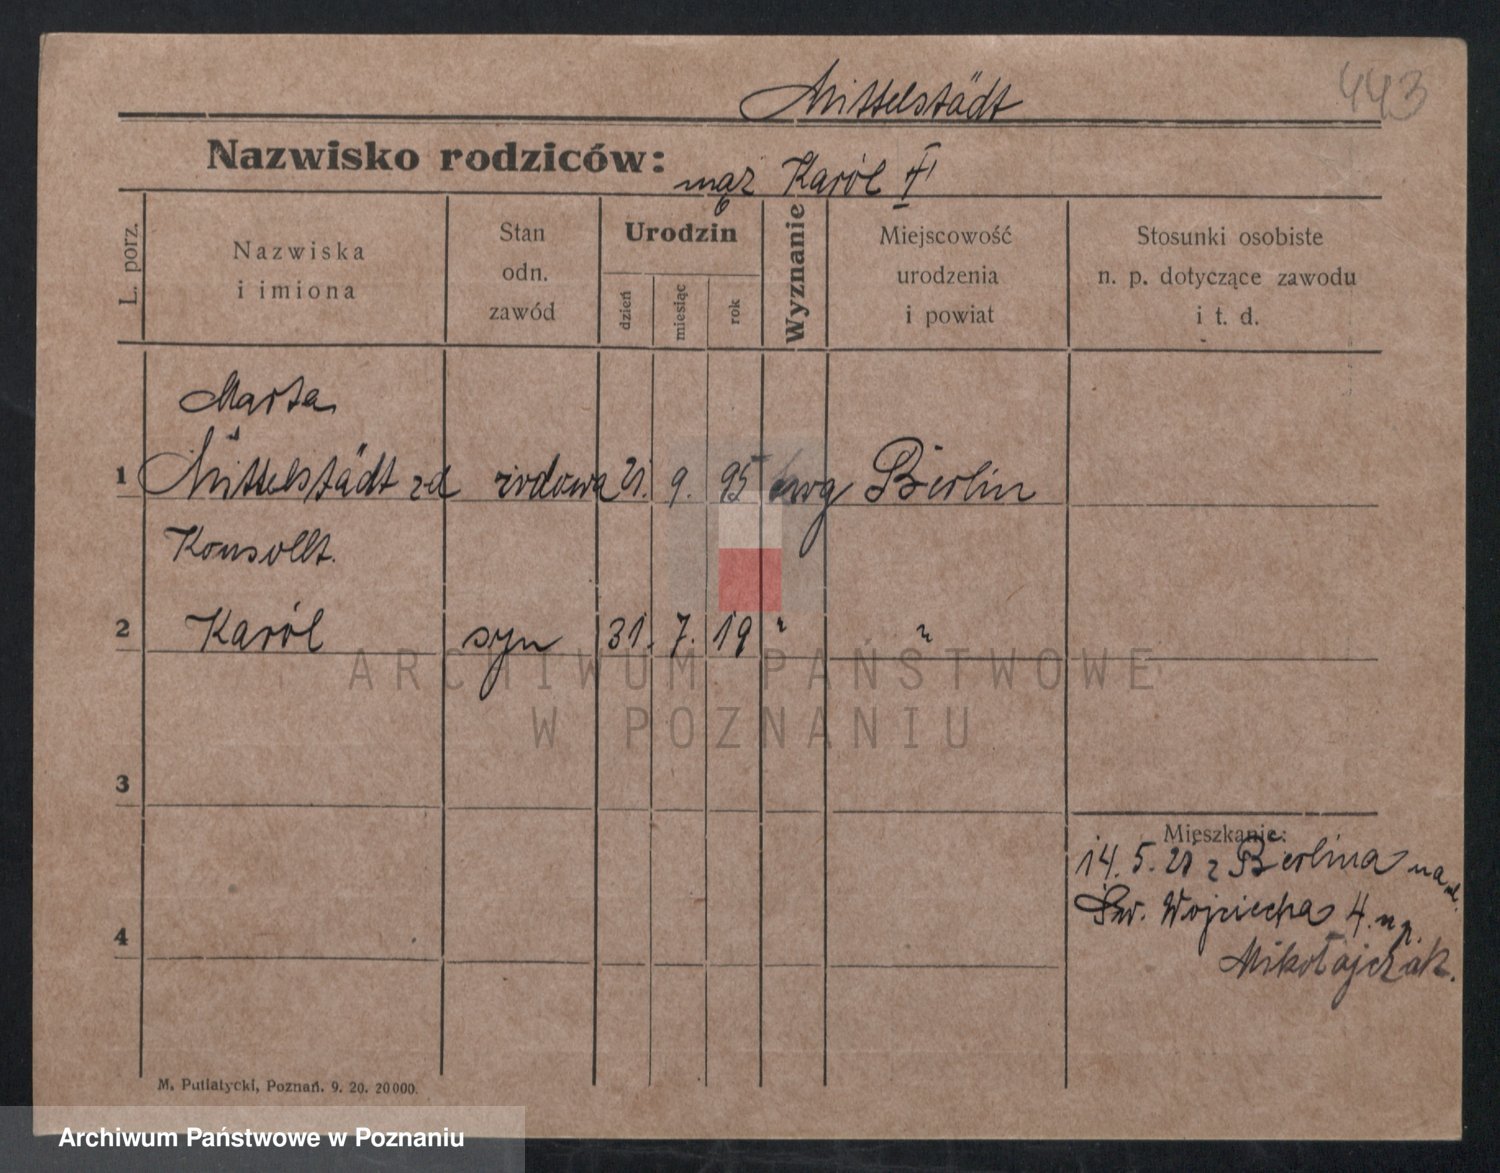 Mittelstädt
443
Nazwisko rodziców: mąż Karól
L. porz.
Nazwiska
i imiona
Stan
odn.
zawód
Urodzin
dzień
miesiąc
rok
Wyznanie
Miejscowość
urodzenia
i powiat
Stosunki osobiste
n. p. dotyczące zawodu
i t. d.
Marta
1 Mittelstädt zd wdowa 21. 9. 95 ewg Berlin
Konsollt.
2 Karól syn 31. 7. 19 " "
ARCHIWUM PAŃSTWOWE
W POZNANIU
3
Mieszkanie:
14. 5. 21 z Berlina na ul.
Św. Wojciecha 4. u p.
4
Mikołajczak.
M. Putiatycki, Poznań. 9. 20. 20000.
Archiwum Państwowe w Poznaniu